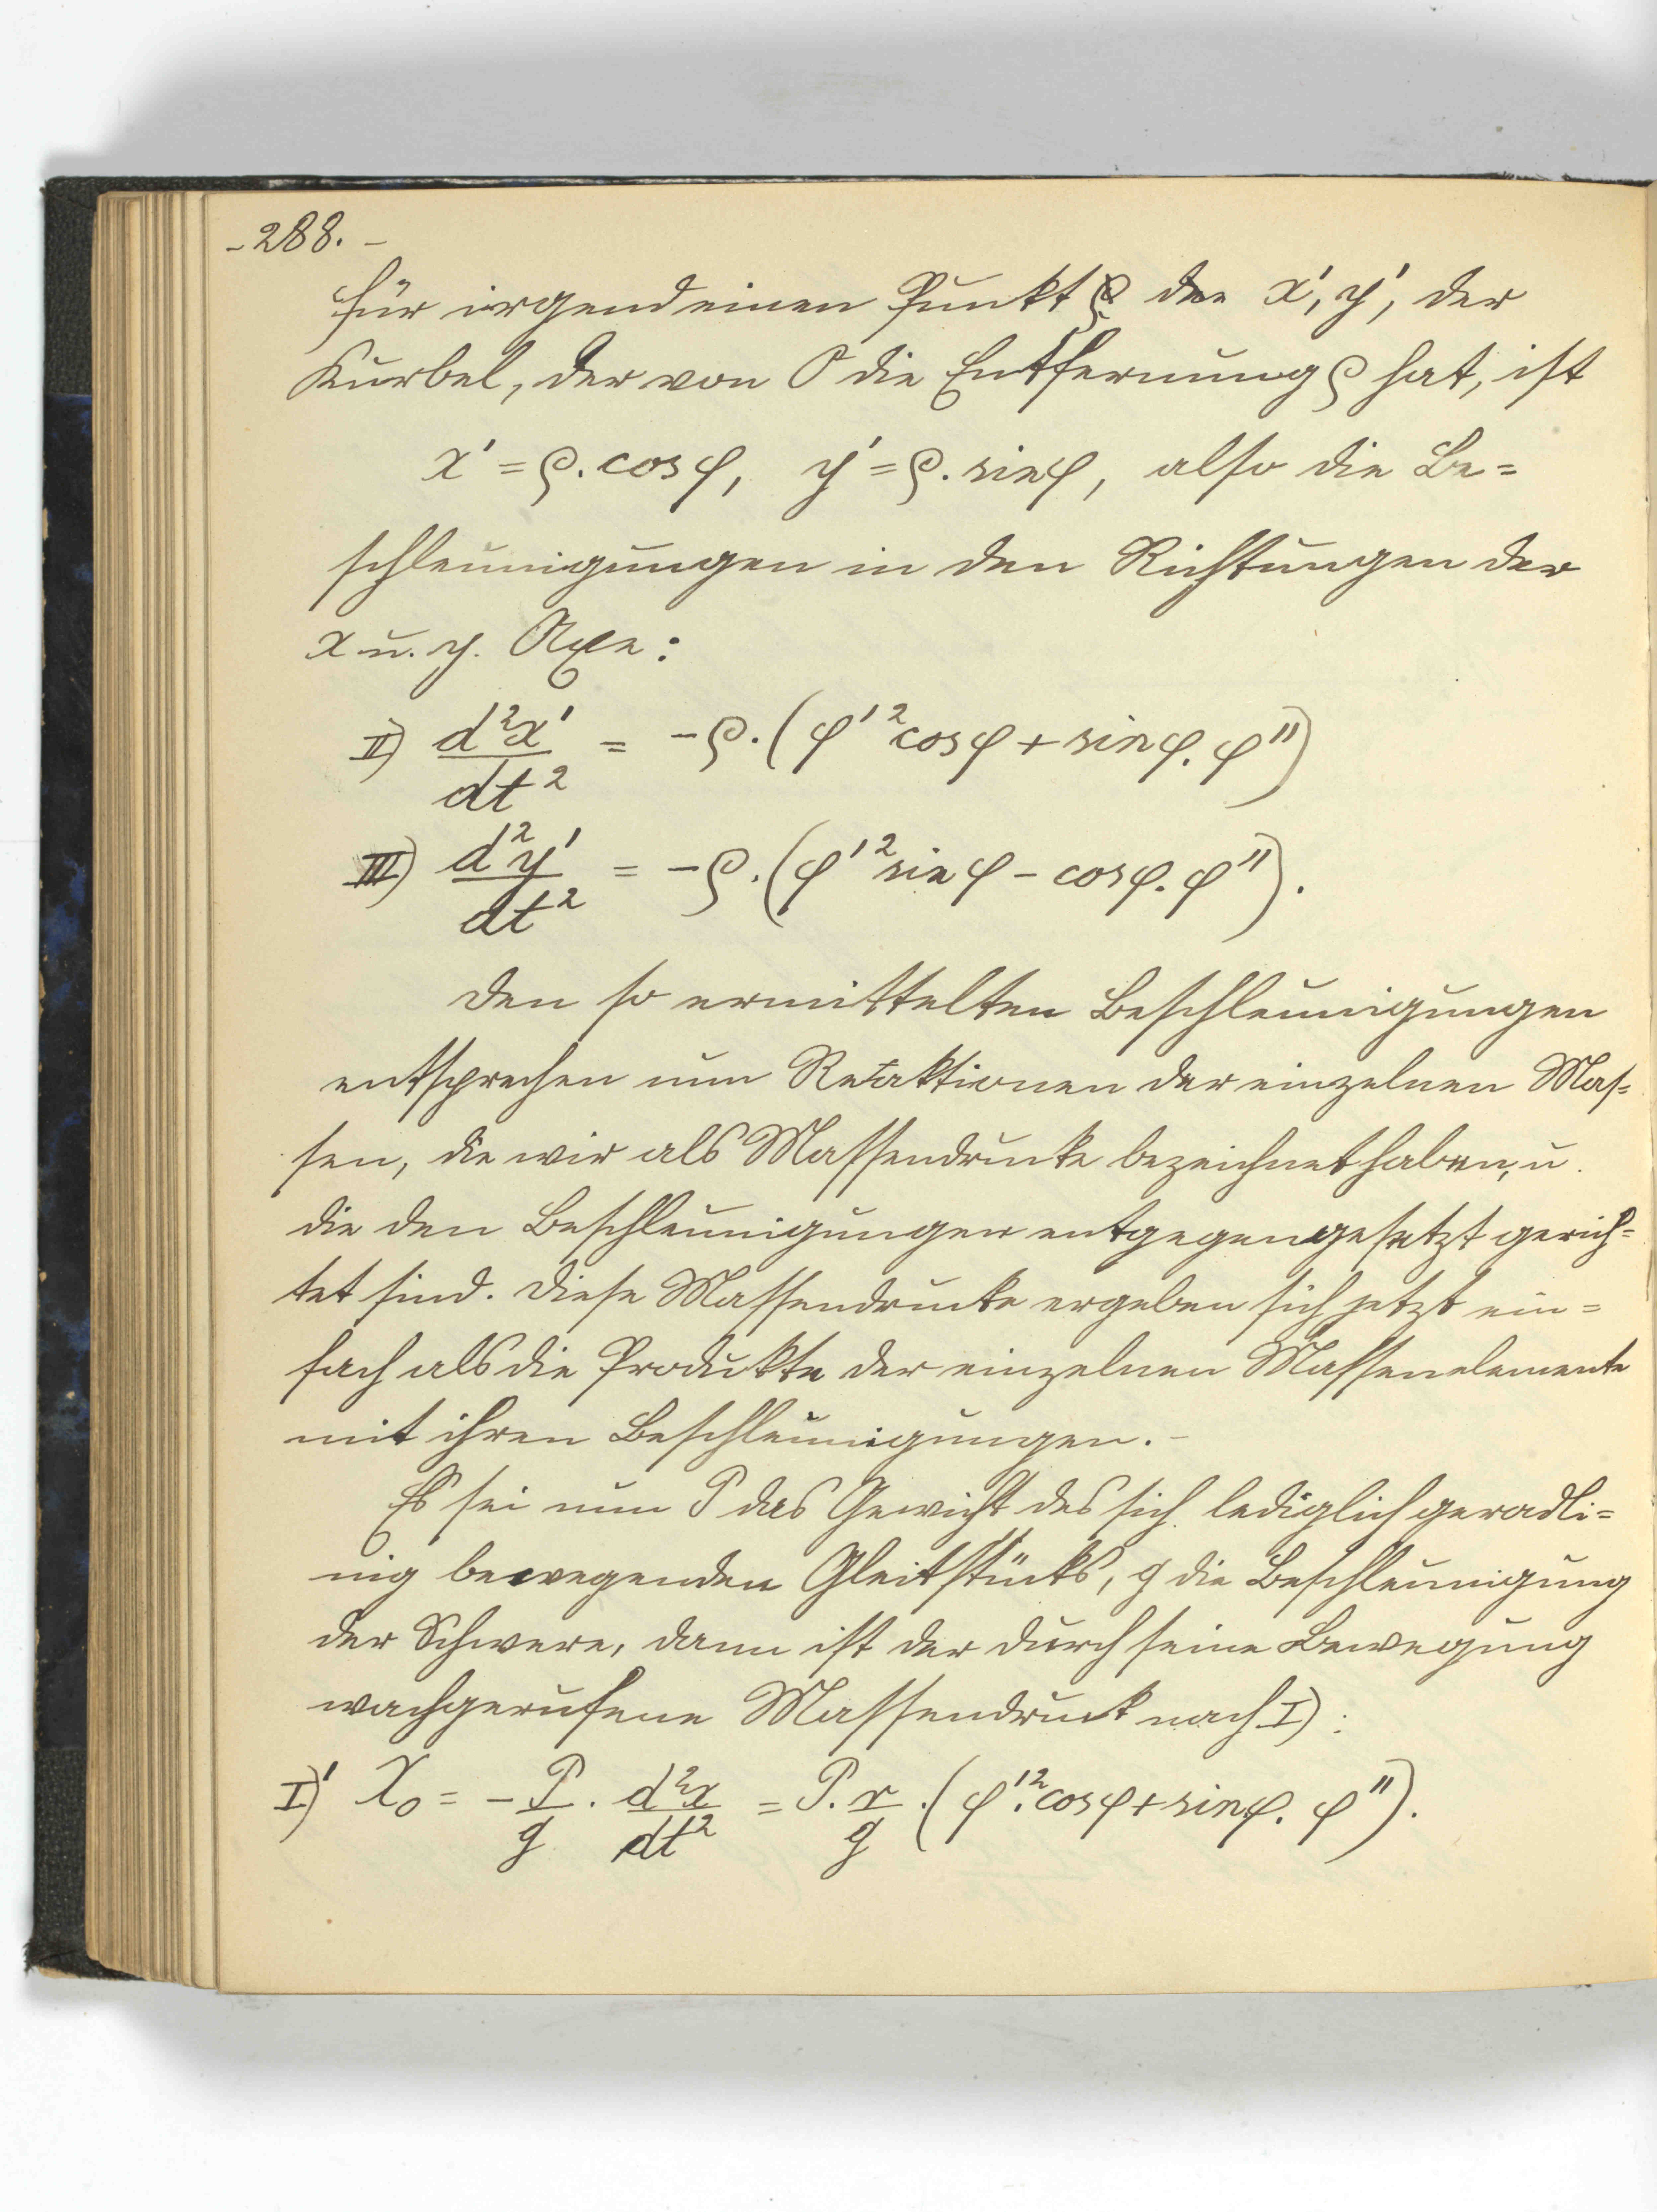 - 288. -
für irgend einen Punkt der x', y', der
Kurbel, der von O die Entfernung ρ hat, ist
x' = ρ. cos φ, y' = ρ. sin φ, also die Be=
schleunigungen in den Richtungen der
x u. y. Axe:
II) d²x'/dt² = -ρ. (φ'² cos φ + sin φ. φ'')
III) d²y'/dt² = -ρ. (φ'² sin φ - cos φ. φ'').
Den so ermittelten Beschleunigungen
entsprechen nun Reaktionen der einzelnen Mas=
sen, die wir als Massendrucke bezeichnet haben, u.
die den Beschleunigungen entgegengesetzt gerich=
tet sind. Diese Massendrucke ergeben sich jetzt ein=
fach als die Produkte der einzelnen Massenelemente
mit ihren Beschleunigungen. -
Es sei nun P das Gewicht des sich lediglich geradli=
nig bewegenden Gleitstücks, g die Beschleunigung
der Schwere, dann ist der durch seine Bewegung
wachgerufene Massendruck nach I):
I)' X₀ = - P/g . d²x/dt² = P. r/g .(φ'². cos φ + sin φ. φ'').